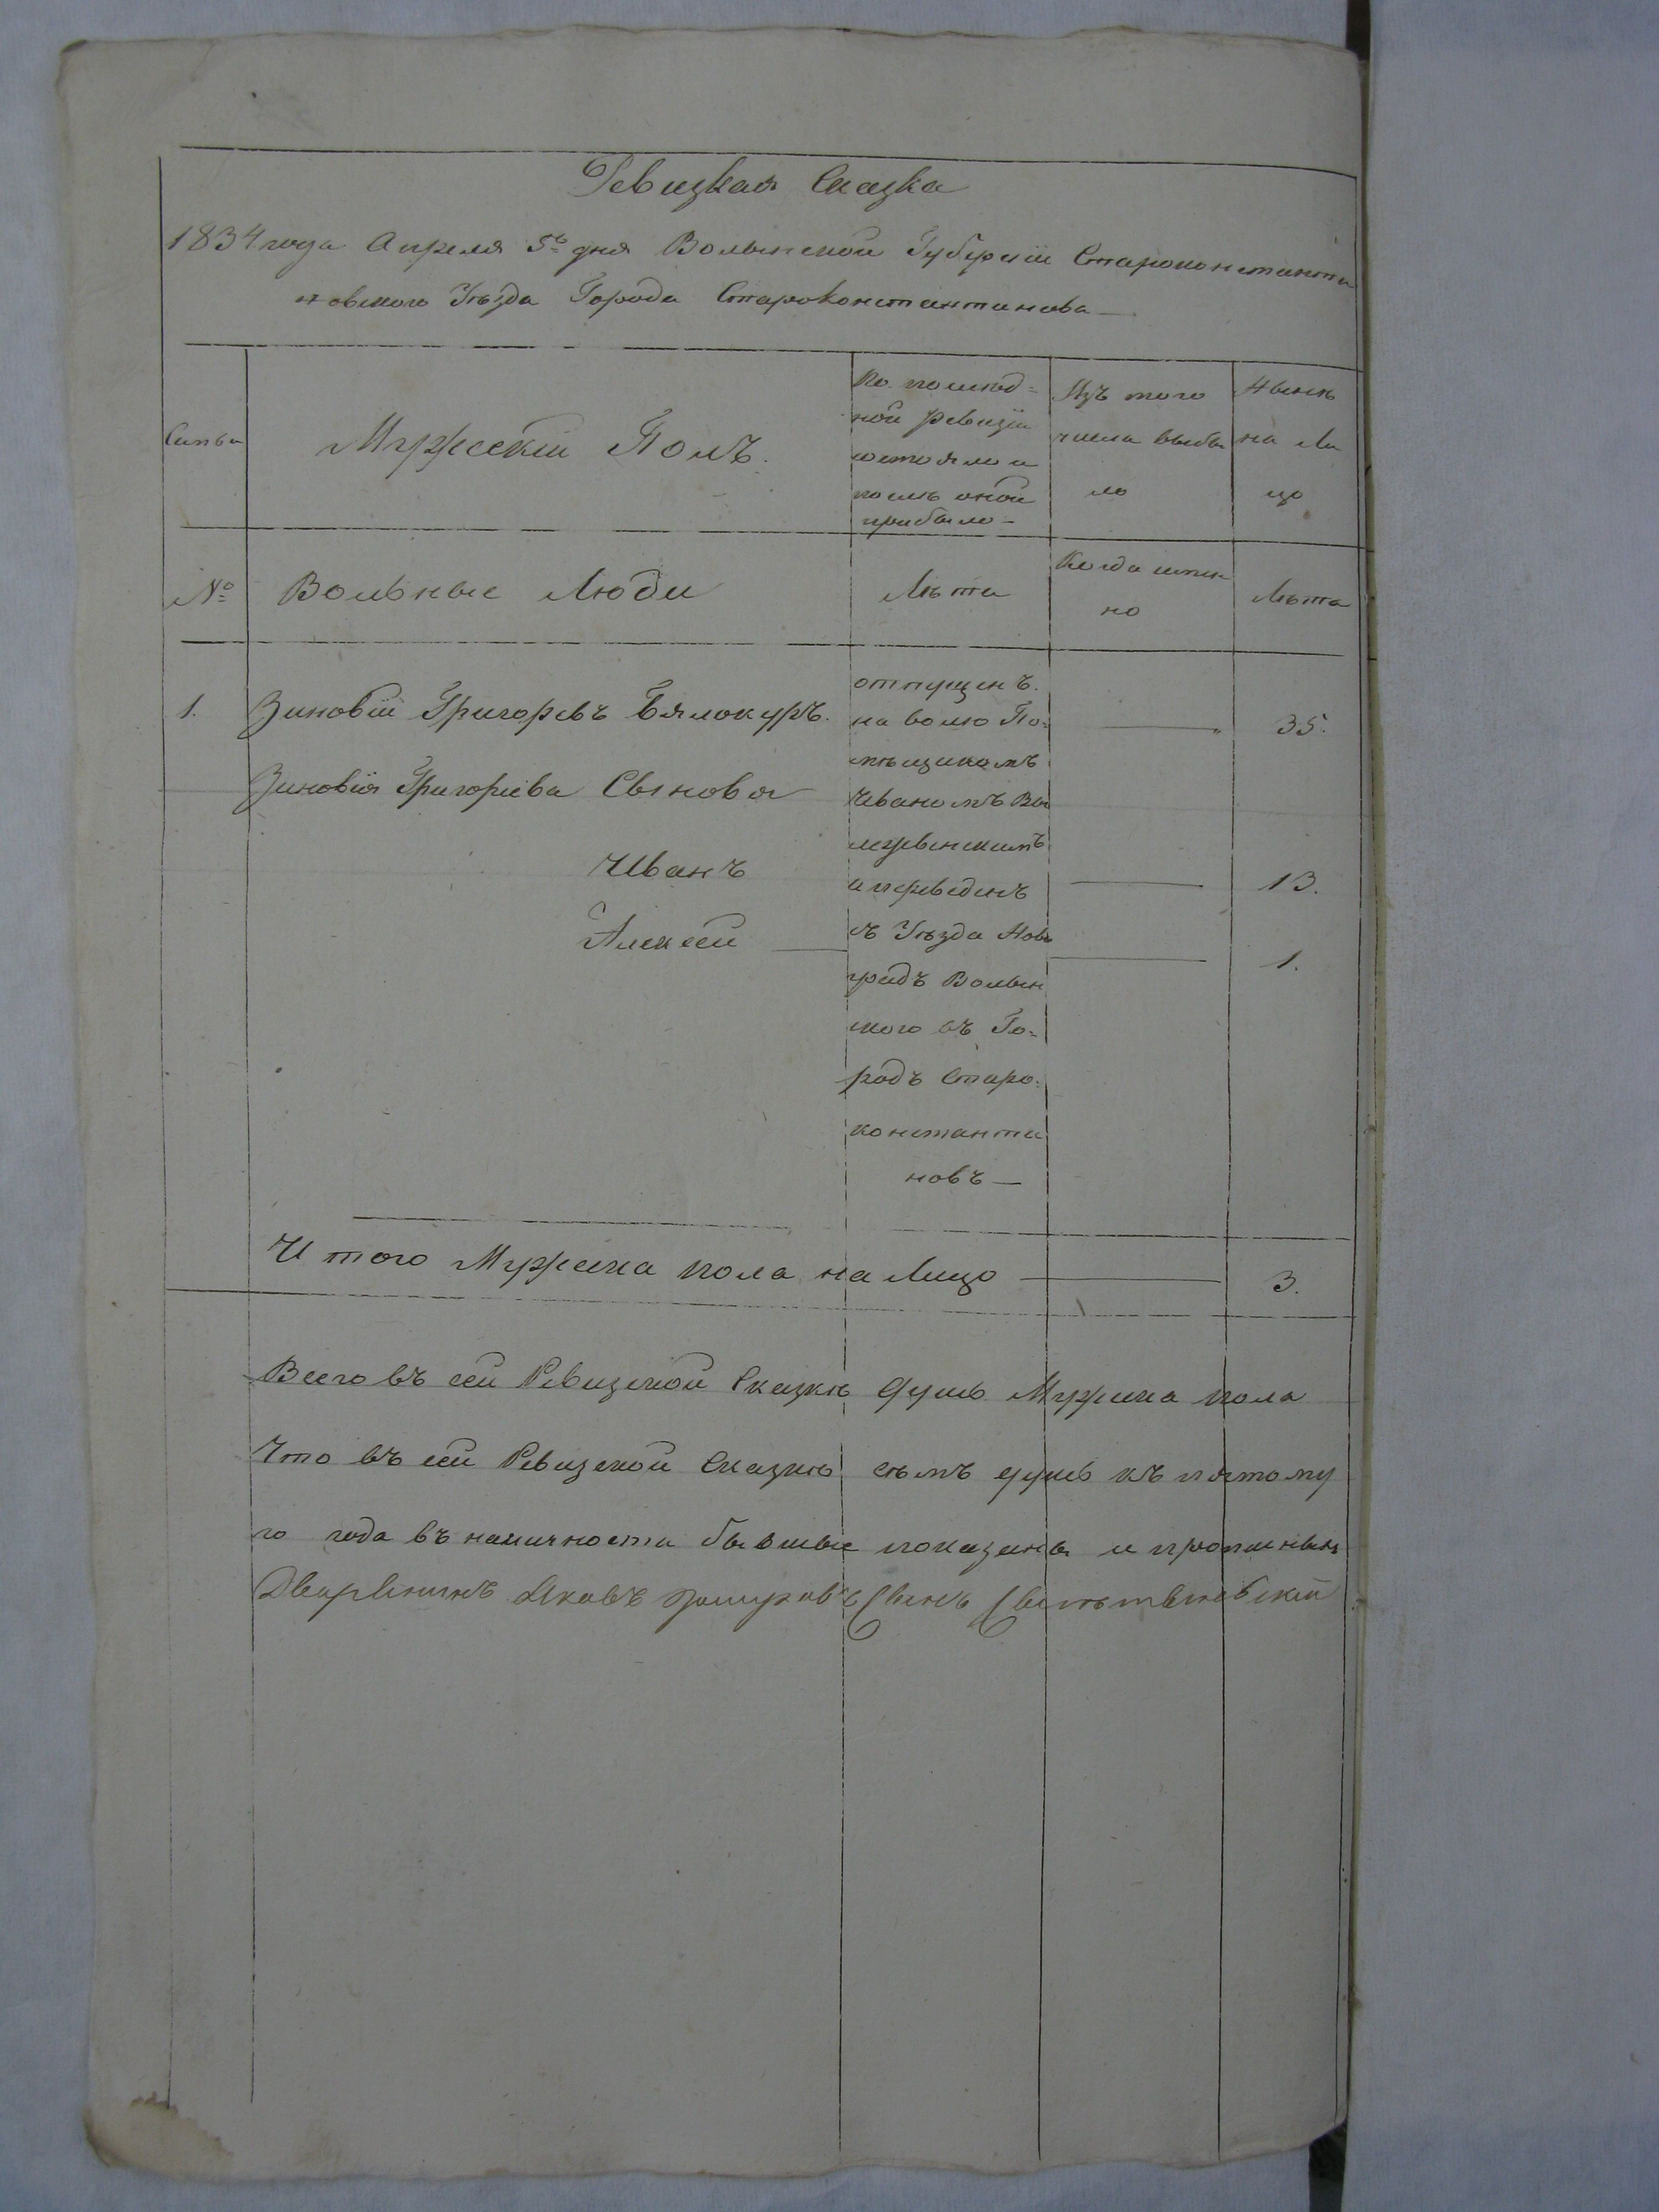 Ревизкая Сказка
1834 года Апреля 5ъ дня Волынской Губерніи Староконстанти
новского Уезда Города Староконстантинова
Симьи
Мужескій Полъ.
по послѣд=
ной ревизіи
состояло и
послѣ оной
прибыло
Изъ того
числа выбы
ло
Нынѣ
на ли
цо
№
Вольные Люди
Лѣта
Когда имян
но
Лѣта
1. Зиновій Григоревъ Бялокуръ. 35.
Зиновія Григорієва Сыновья
Иванъ 13.
Алексѣй 1.
отпущенъ.
на волю По=
мѣщикомъ
Иваномъ
и переведенъ
съ Уѣзда Новъ
градъ Волын
ского въ Го=
родъ Старо=
константи
новъ
Итого Мужеска пола на лицо 3.
Всего въ сей Ревизской Сказкѣ душъ Мужеска пола
Что въ сей Ревизской Сказкѣ семъ душъ къ пятому
го года въ наличности бывшые показаны и
Дворянинъ Яковъ Сынъ